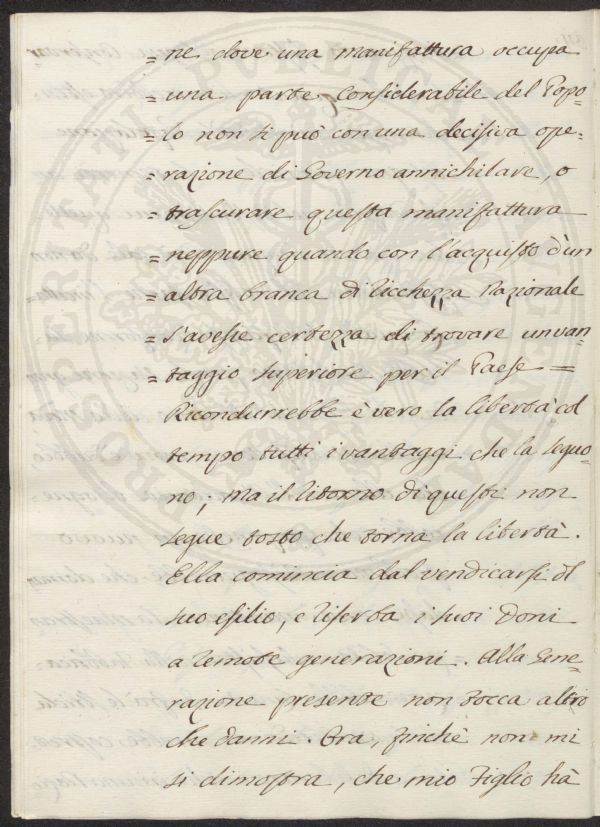 = ne dove una manifattura occupa
= una parte considerabile del Popo-
= lo non si può con una decisiva ope-
= razione di Governo annichilare, o
= trascurare questa manifattura
= neppure quando con l'acquisto d'un
= altra branca di ricchezza Nazionale
= s'avesse certezza di trovare un van-
= taggio superiore per il Paese =
Ricondurrebbe è vero la libertà col
tempo tutti i vantaggi che la seguo-
no; ma il ritorno di questi non
segue tosto che torna la libertà.
Ella comincia dal vendicarsi del
suo esilio, e riserba i suoi doni
a remote generazioni. Alla Gene-
razione presente non tocca altro
che danni. Ora, finchè non mi
si dimostra, che mio Figlio hà
PROSPERITATI PUBLICAE AUGENDAE